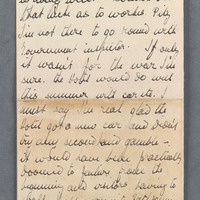 that work as to worries. Pity
I'm not there to go round with
Government inspector. If only
it wasn't for the war I'm
sure the Hotel would do well
this summer with cars etc. I
must say I'm real glad the
Hotel got a new car and didn't
try any secondhand gamble -
it would have been practically
doomed to failure, goods the
running and visitors having to